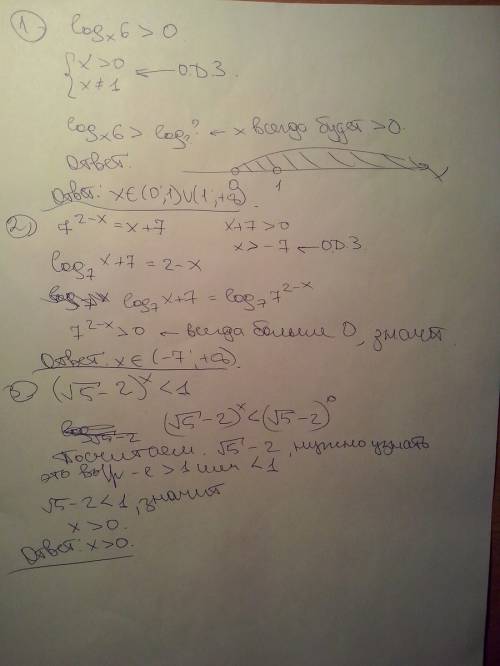 1) log_x 6 > 0
{ x > 0
x ≠ 1 ← О.Д.З.
log_x 6 > log_? ? ← x всегда будет > 0.
Ответ.
0 1 x
Ответ: x ∈ (0; 1) ∪ (1; +∞).
2) 7^{2-x} = x+7 x+7 > 0
x > -7 ← О.Д.З
log_7 x+7 = 2-x
log_7 x+7 = log_7 7^{2-x}
7^{2-x} > 0 ← всегда больше 0, значит
Ответ: x ∈ (-7; +∞).
3) (√5 - 2)^x < 1
(√5 - 2)^x < (√5 - 2)^0
Посчитаем √5 - 2, нужно узнать
это выр-е > 1 или < 1
√5 - 2 < 1, значит
x > 0.
Ответ: x > 0.